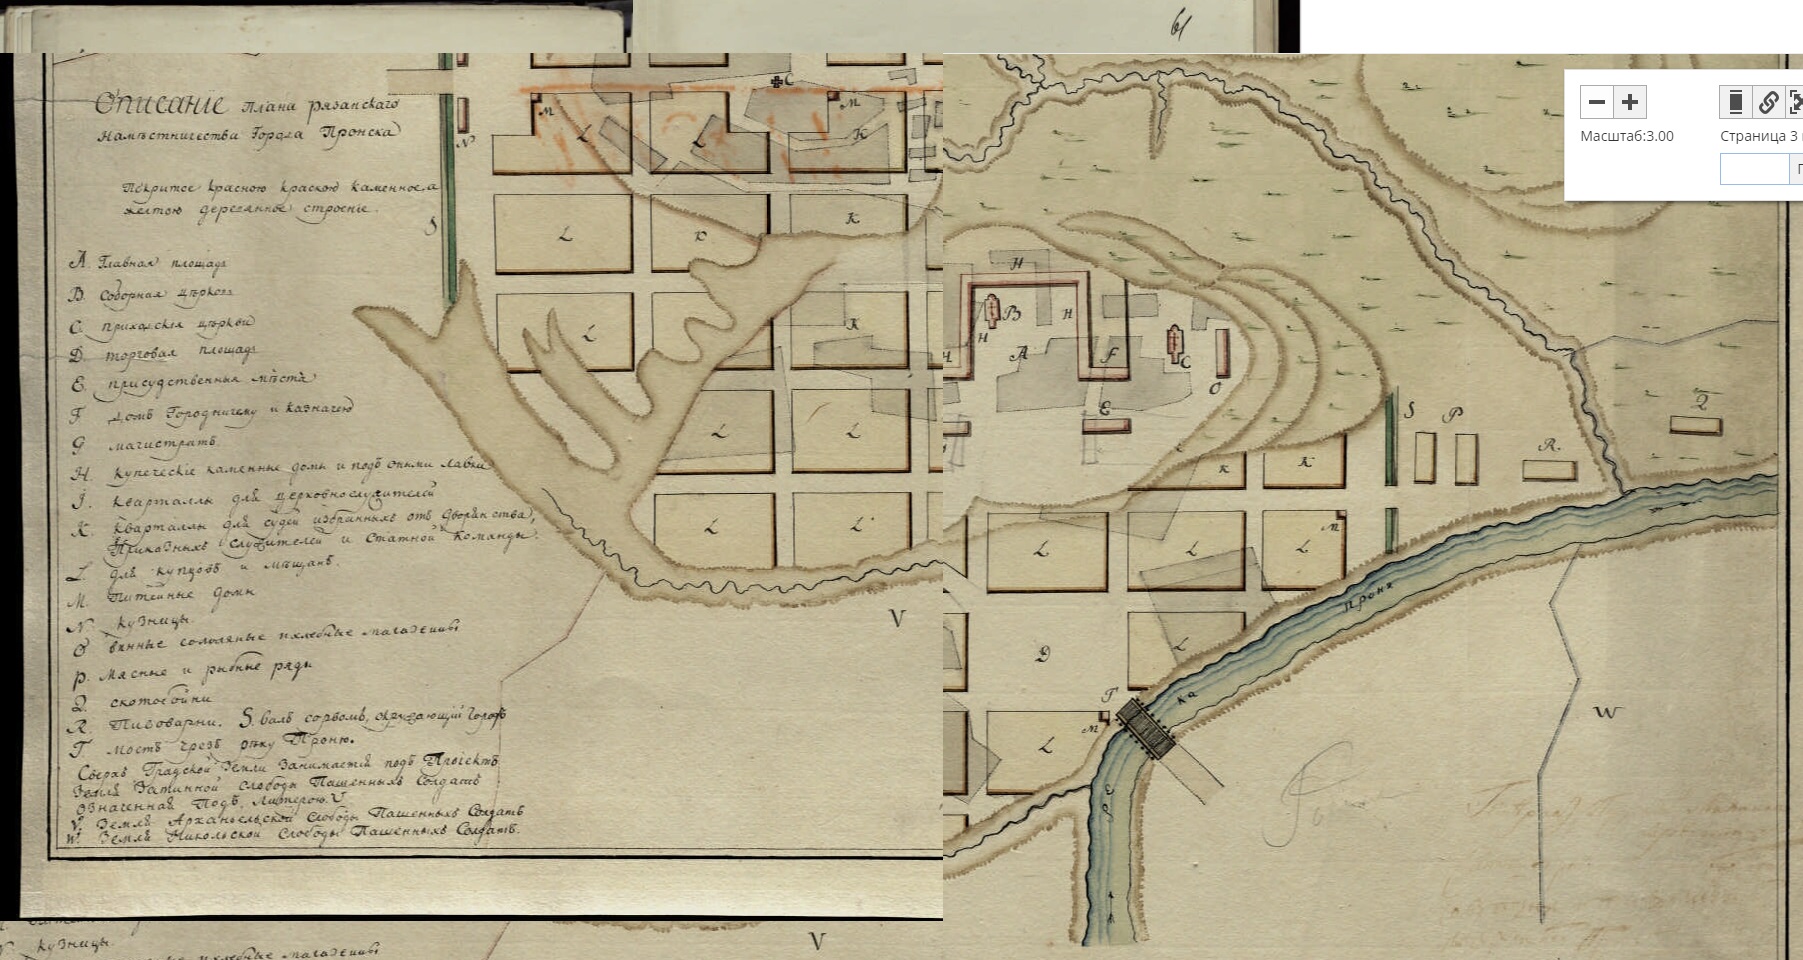 61
Описаніе плана рязанскаго
намѣстничества города Пронска
Покрытое красною краскою каменное, а
желтою деревянное строеніе.
A. Главная площадь
B. Соборная церковь
C. приходскія церкви
D. торговая площадь
E. присудственныя мѣста
F. домъ Городничему и казначею
G. магистратъ.
H. купеческіе каменные домы и подъ оными лавки
I. кварталлы для церковнослужителей
K. кварталлы для судей избранныхъ отъ дворянства,
Приказныхъ служителей и статной команды.
L. для купцовъ и мѣщанъ.
M. Питейные домы
N. кузницы.
O. винные соляные и хлебные магазеины
P. Мясные и рыбные ряды
Q. скотобойни
R. Пивоварни. S. валъ со рвомъ, окружающій городъ
T. мостъ чрезъ рѣку Проню.
Сверхъ Градской Земли Занимается подъ Проектъ
Земля Затинной слободы Пашенныхъ Солдатъ
означенная Подъ Литерою V
V. Земля Архангельской слободы Пашенныхъ Солдатъ
W. Земля Никольской Слободы Пашенныхъ Солдатъ.
C
M
M
N
L
L
K
S
L
K
K
L
K
L
L
L
L
V
H
B
H
H
A
F
C
O
E
S
P
R.
Q
K
K
L
L
L
M
D
L
T
M
L
рс
ка
Проня
W
Масштаб:3.00
Страница 3
кузницы.
V